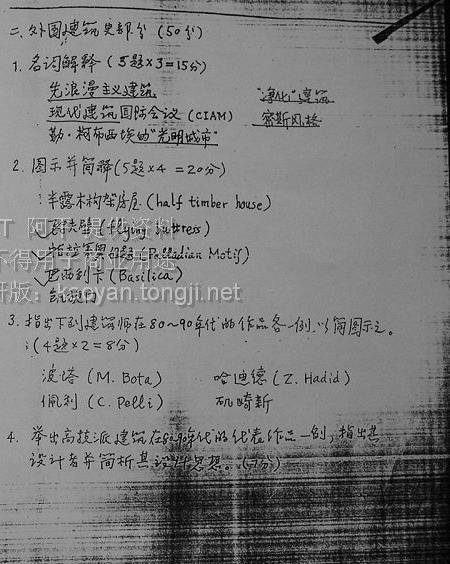 二、外国建筑史部分 (50分)
1. 名词解释 (5题×3=15分)
先浪漫主义建筑 "净化"建筑
现代建筑国际会议 (CIAM) 密斯风格
勒·柯布西埃的"光明城市"
2. 图示并简释(5题×4=20分)
半露木构架房屋 (half timber house)
(flying buttress)
母题 (Palladian Motif)
巴西利卡 (Basilica)
凯旋门
3. 指出下列建筑师在80~90年代的作品各一例,以简图示之。
(4题×2=8分)
波塔 (M. Bota) 哈迪德 (Z. Hadid)
佩利 (C. Pelli) 矶崎新
4. 举出高技派建筑在80~90年代的代表作品一例,指出其
设计者并简析其设计思想。(7分)
阿 提供资料
不得用于商业用途
研版: kaoyan.tongji.net